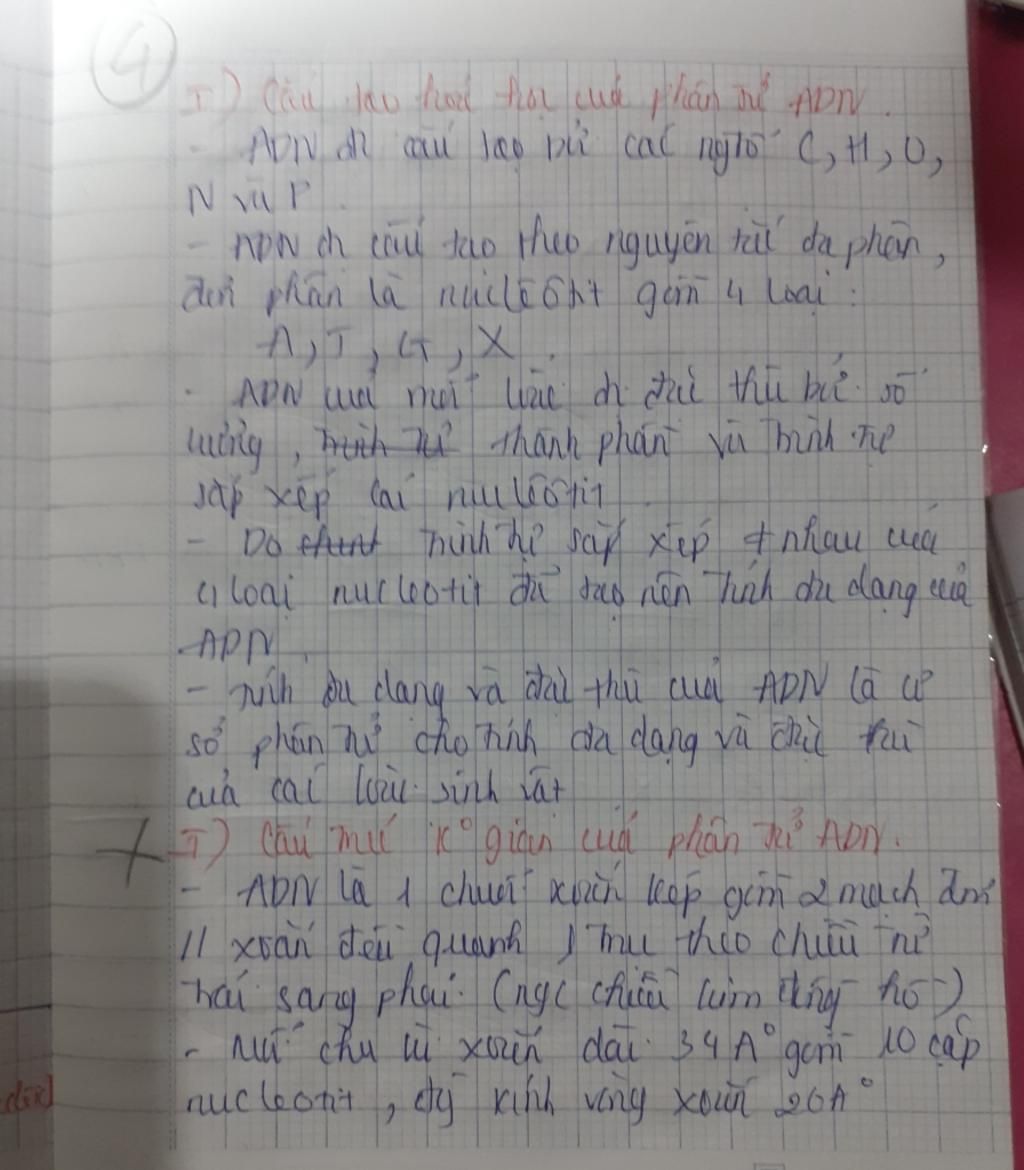 4
I) Cấu tạo hoá học của phân tử ADN.
- ADN đc cấu tạo bởi các ngtố C, H, O,
N và P.
- ADN đc cấu tạo theo nguyên tắc đa phân,
đơn phân là nuclêôtit gồm 4 loại:
A, T, G, X.
- ADN của mỗi loài đc đặc thù bởi số
lượng, trình tự thành phần và trình tự
sắp xếp các nuclêôtit
- Do trình tự sắp xếp ≠ nhau của
4 loại nucleotit đã tạo nên tính đa dạng của
ADN.
- Tính đa dạng và đặc thù của ADN là cơ
sở phân tử cho tính đa dạng và đặc thù
của các loài sinh vật
I) Cấu trúc k° gian của phân tử ADN.
- ADN là 1 chuỗi xoắn kép gồm 2 mạch đơn
// xoắn đều quanh 1 trục theo chiều từ
trái sang phải. (ngc chiều kim đồng hồ)
- Mỗi chu kì xoắn dài 34A° gồm 10 cặp
nucleotit, đg kính vòng xoắn 20A°